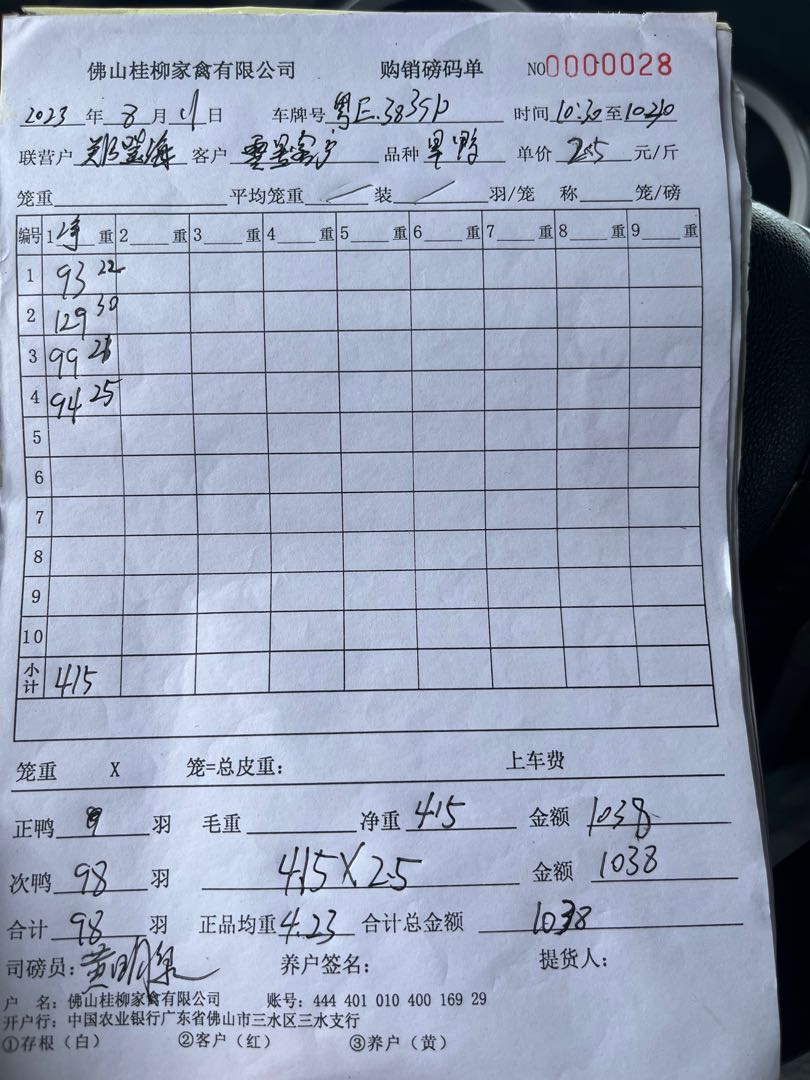 佛山桂柳家禽有限公司 购销磅码单 NO0000028
2023 年 8 月 日 车牌号 粤E.3839P 时间 10:30 至 10:40
联营户 客户 品种 单价 2.5 元/斤
笼重 平均笼重 装 羽/笼 称 笼/磅
编号 1 净 重 2 重 3 重 4 重 5 重 6 重 7 重 8 重 9 重
1 93 22
2 129 30
3 99 21
4 94 25
5
6
7
8
9
10
小计 415
笼重 X 笼=总皮重: 上车费
正鸭 羽 毛重 净重 415 金额 1038
次鸭 98 羽 415X2.5 金额 1038
合计 98 羽 正品均重 4.23 合计总金额 1038
司磅员: 黄明泉 养户签名: 提货人:
户 名: 佛山桂柳家禽有限公司 账号: 444 401 010 400 169 29
开户行: 中国农业银行广东省佛山市三水区三水支行
①存根(白) ②客户(红) ③养户(黄)